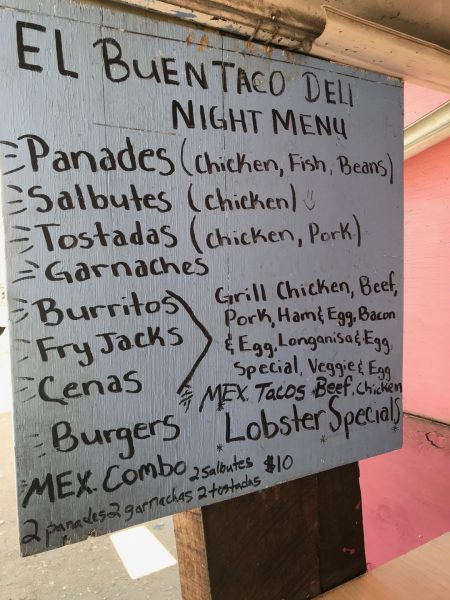 EL BUEN TACO DELI
NIGHT MENU
Panades (Chicken, Fish, Beans)
Salbutes (chicken)
Tostadas (chicken, Pork)
Garnaches
Burritos
Fry Jacks
Cenas
Grill Chicken, Beef,
Pork, Ham & Egg, Bacon
& Egg, Longanisa & Egg,
Special, Veggie & Egg
MEX. Tacos Beef, Chicken
Burgers
*Lobster Specials*
MEX. Combo 2 salbutes $10
2 panades 2 garnachas 2 tostadas